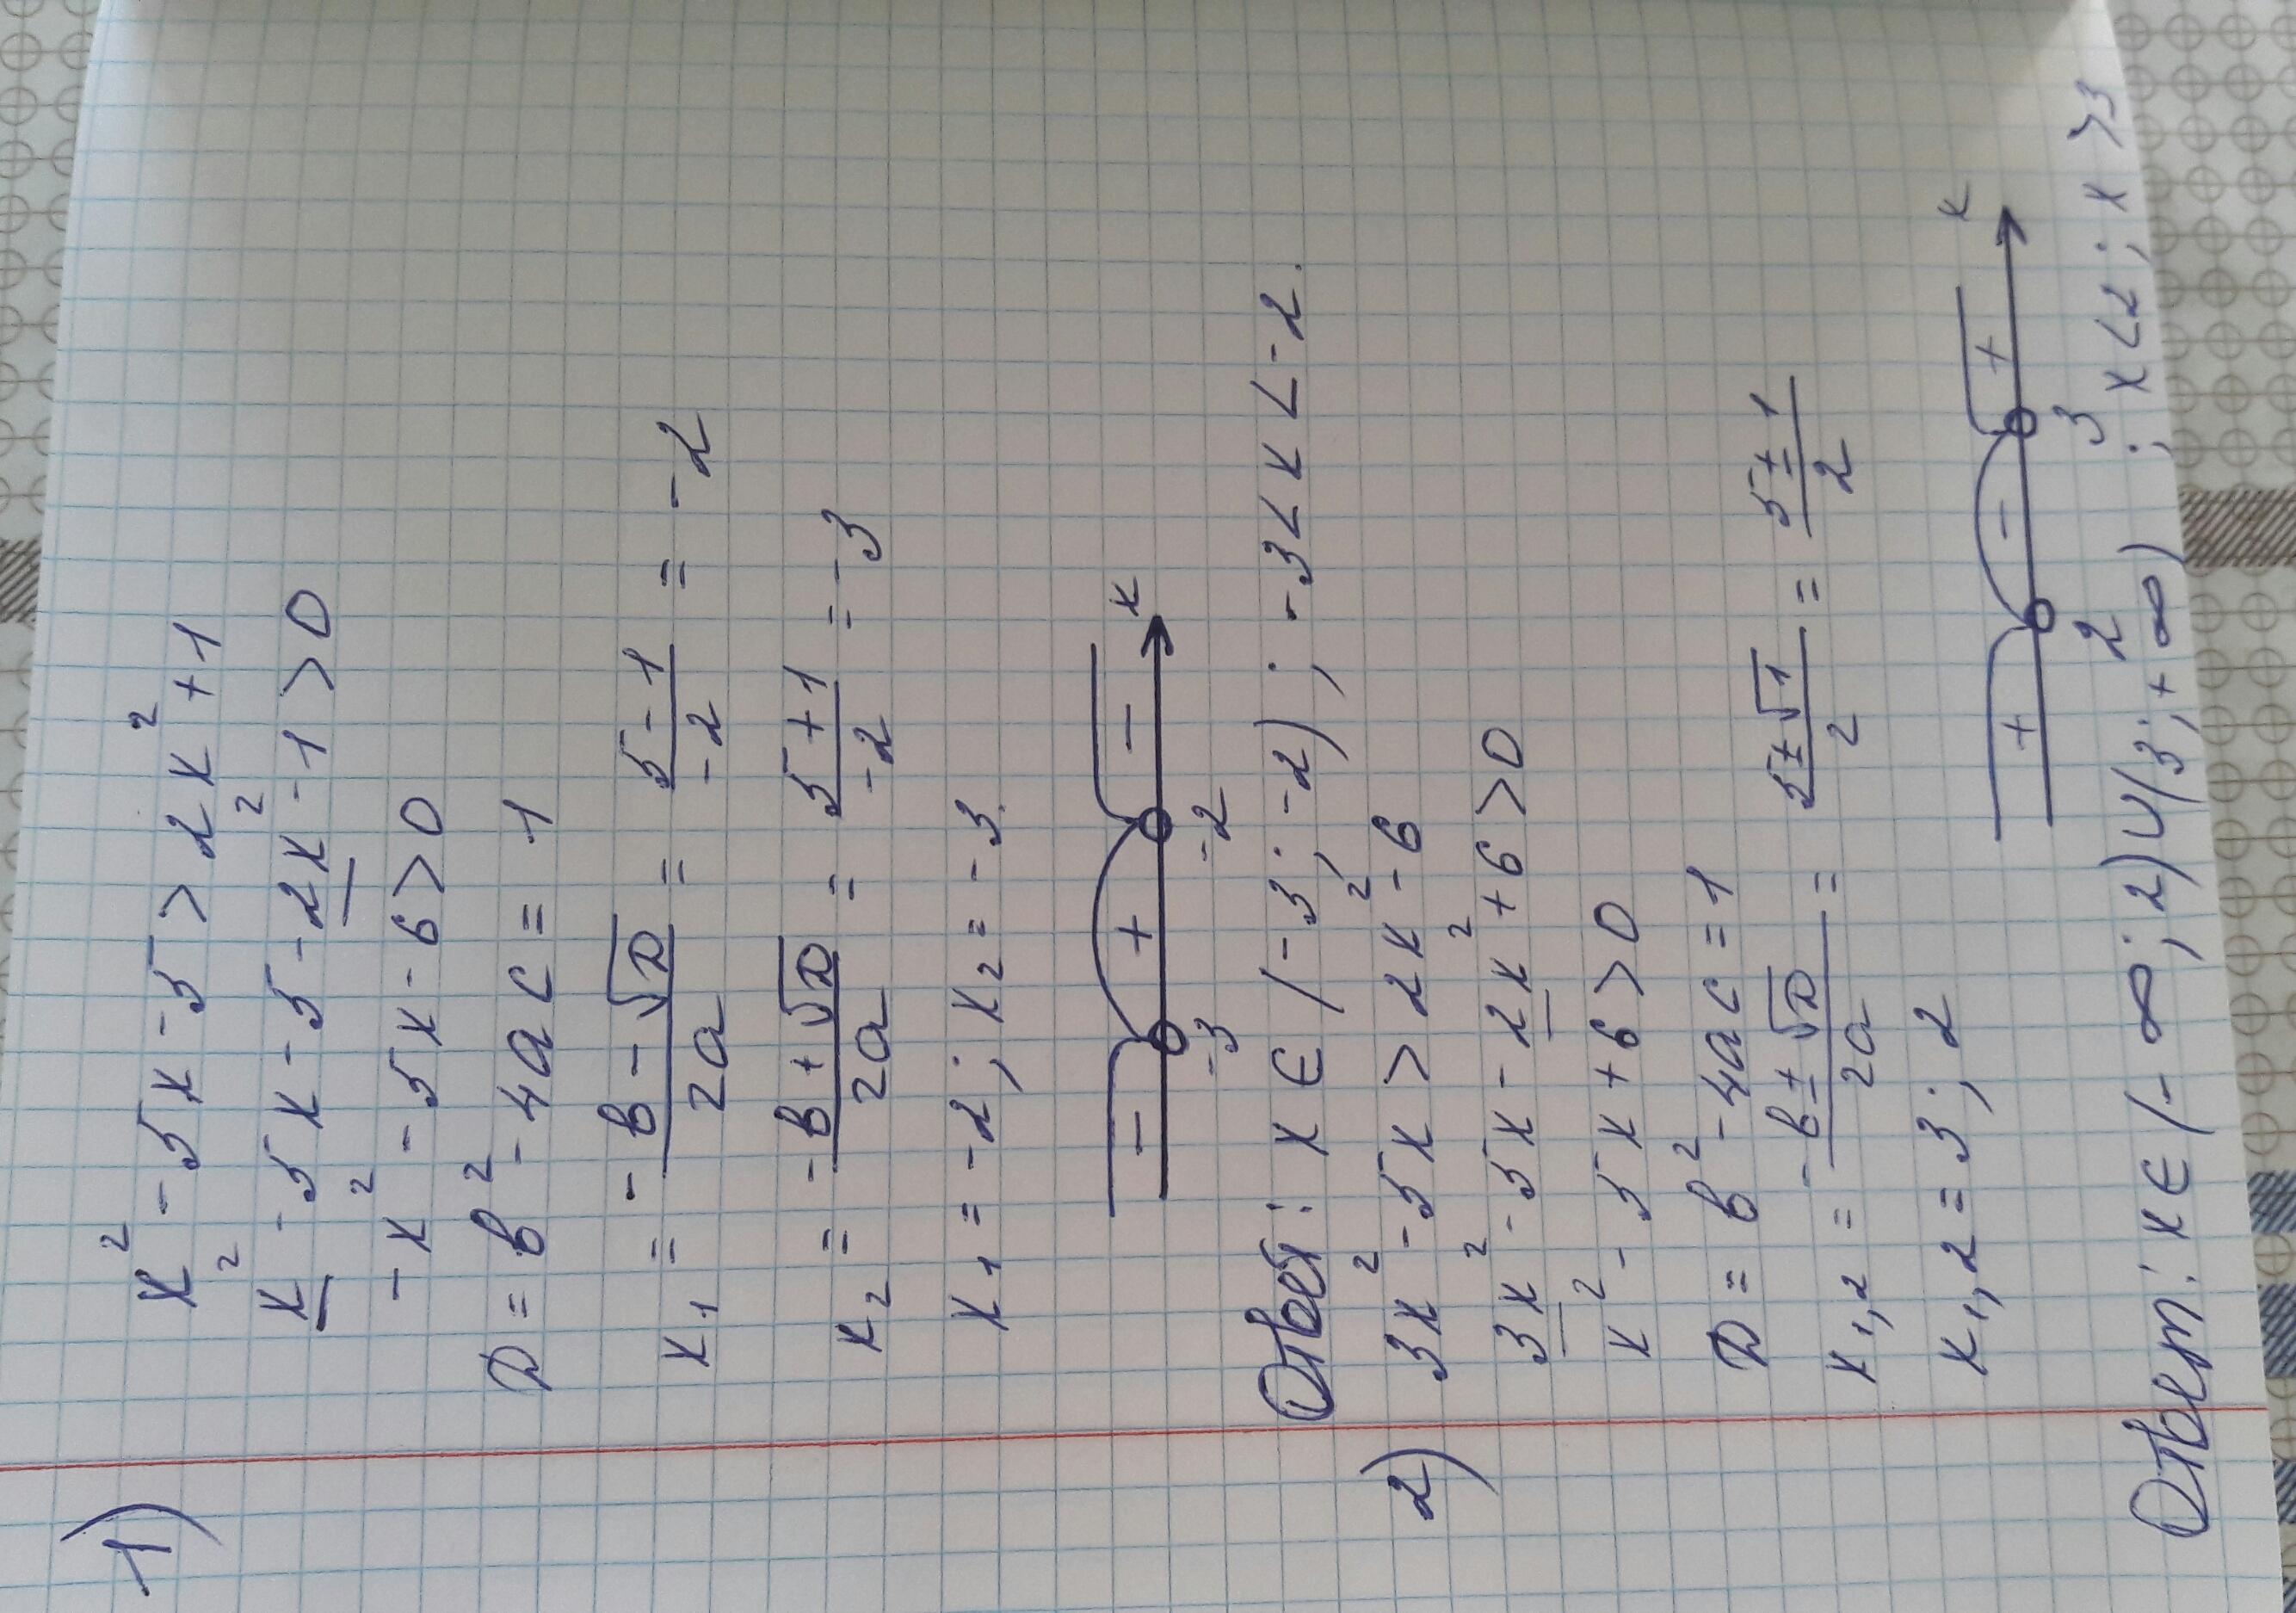 1) x² - 5x - 5 > 2x² + 1
x² - 5x - 5 - 2x² - 1 > 0
- x² - 5x - 6 > 0
D = b² - 4ac = 1
x₁ = (-b - √D)/(2a) = (5 - 1)/(-2) = -2
x₂ = (-b + √D)/(2a) = (5 + 1)/(-2) = -3
x₁ = -2; x₂ = -3.
- + - x
-3 -2
Ответ: x ∈ (-3; -2); -3 < x < -2.
2) 3x² - 5x > 2x² - 6
3x² - 5x - 2x² + 6 > 0
x² - 5x + 6 > 0
D = b² - 4ac = 1
x₁,₂ = (-b ± √D)/(2a) = (5 ± √1)/2 = (5 ± 1)/2
x₁,₂ = 3; 2
+ - + x
2 3
Ответ: x ∈ (-∞; 2) ∪ (3; +∞); x < 2; x > 3